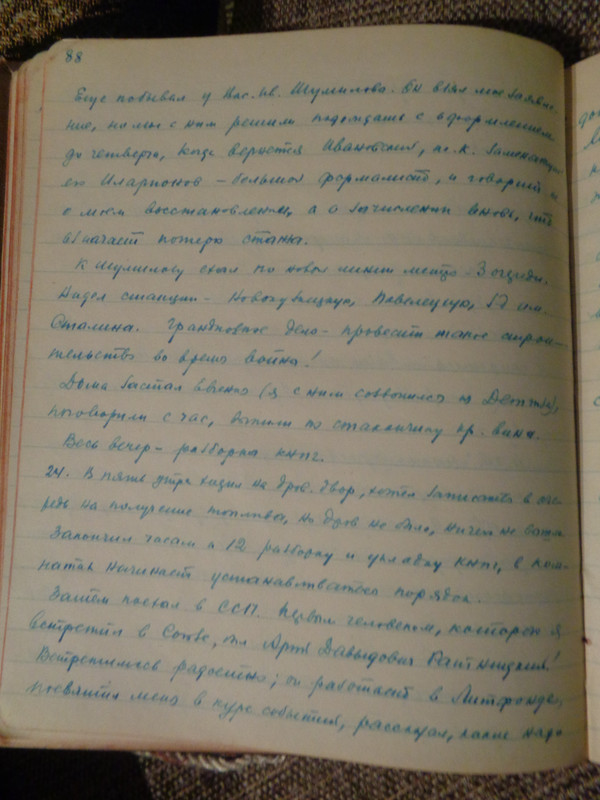 88
Еще побывал у Нас. Ив. Шумилова. Он взял мое заявле-
ние, но мы с ним решили подождать с оформлением
до четверга, когда вернется Ивановский, т.к. заменяющий
его Иларионов – большой формалист, и говорит не
о моем восстановлении, а о зачислении вновь, что
означает потерю стажа.
К Шумилову ехал по новой линии метро - 3 очереди.
Видел станции - Новокузнецкую, Павелецкую, ЗД им.
Сталина. Грандиозное дело - провести такое строи-
тельство во время войны!
Дома застал Евгения (я с ним созвонился из Детгиза),
поговорили с час, выпили по стаканчику кр. вина.
Весь вечер - разборка книг.
24. В пять утра ходил на Дров. двор, хотел записаться в оче-
редь на получение топлива, но дров не было, ничего не вышло
Закончил часам к 12 разборку и укладку книг, в ком-
натах начинает устанавливаться порядок.
Затем поехал в ССП. Первым человеком, которого я
встретил в Союзе, был Арон Давыдович
Встретились радостно; он работает в Литфонде,
посвятил меня в курс событий, рассказал, какие надо